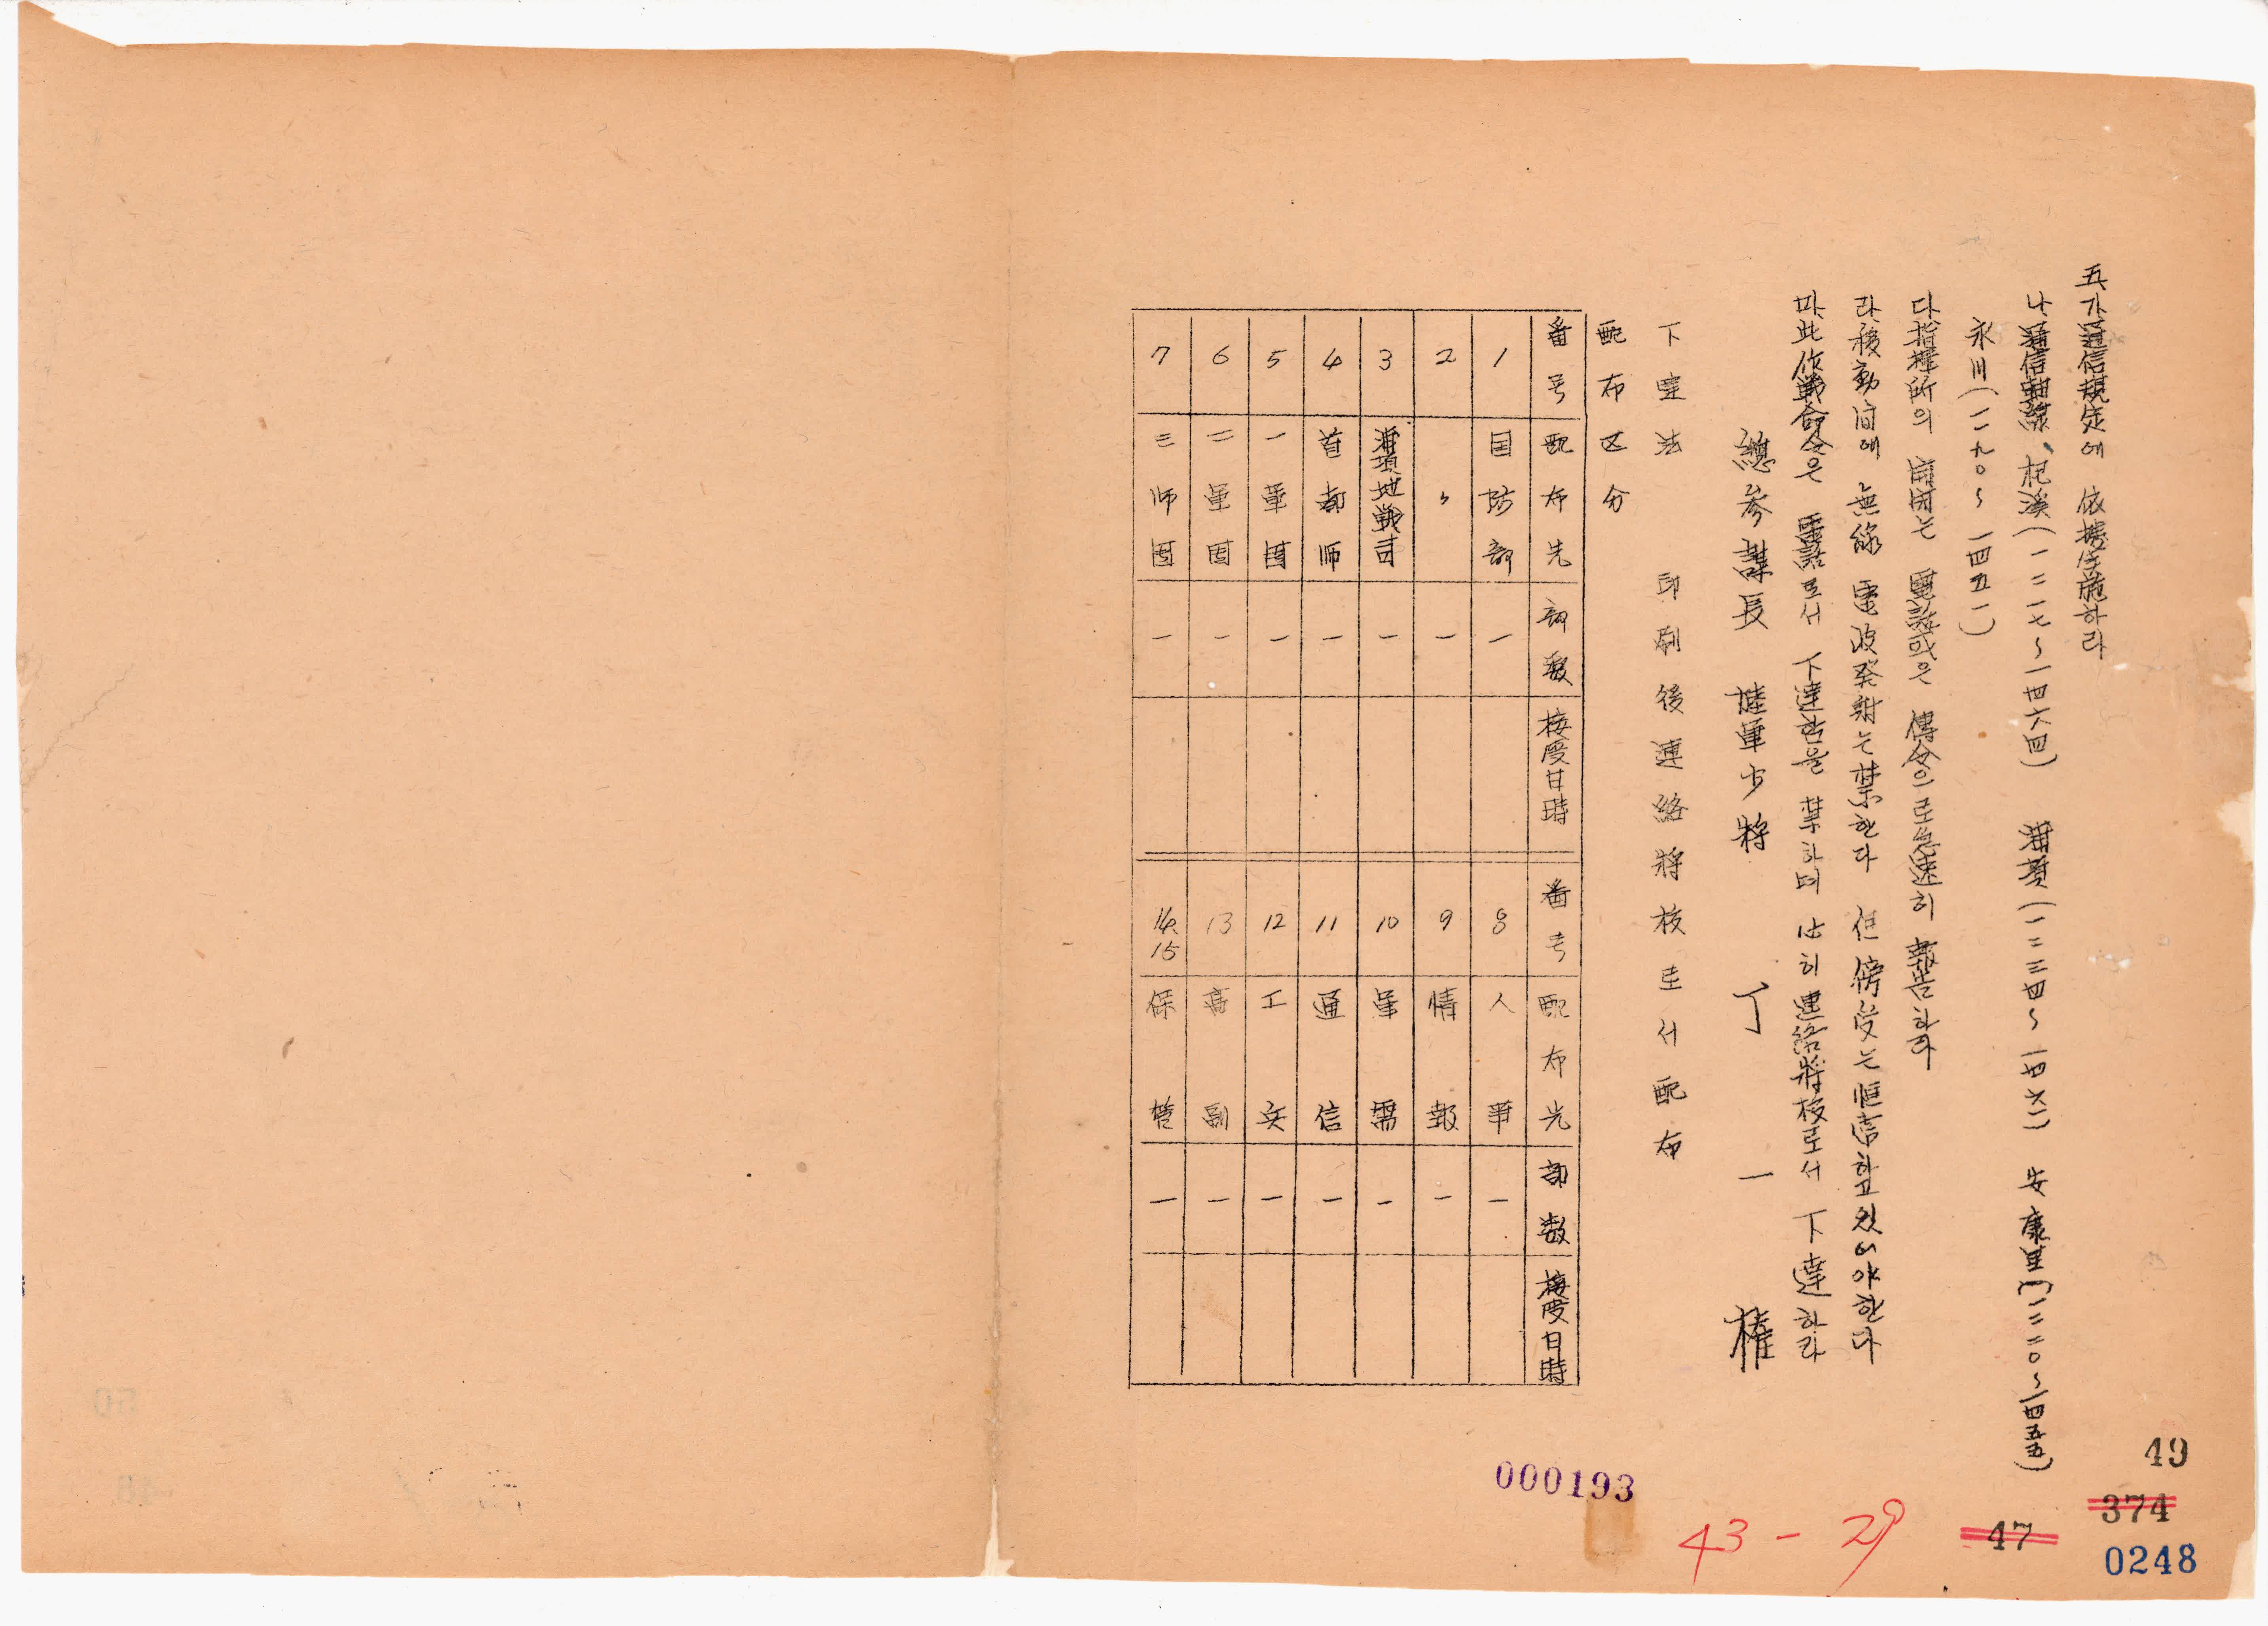 五 가 通信規定에 依據実施하라
나 通信軸線、杞溪(一二一七~一四六四) 浦項(一二三四~一四六一) 安康里(一二二〇~一四五五)
永川(一一九〇~一四五一)
다 指揮所의 開閉는 電話或은 傳令으로 急速히 報告하라
라 移動间에 無線電波発射는 禁한다 但 傍受는 恒常하고 있어야한다
마 此作戰命令은 電話로서 下達함을 禁하며 必히 連絡將校로서 下達하라
總參謀長 陸軍少將 丁一權
下達法 印刷後連絡將校로서配布
配布区分
番号 配布先 部数 接受日時 番号 配布先 部数 接受日時
1 国防部 一 8 人事 一
2 〃 一 9 情報 一
3 浦項地戰司 一 10 軍需 一
4 首都師 一 11 通信 一
5 一軍団 一 12 工兵 一
6 二軍団 一 13 高副 一
7 三师団 一 14.15 保管 一
000193
43-29
49
374
47
0248